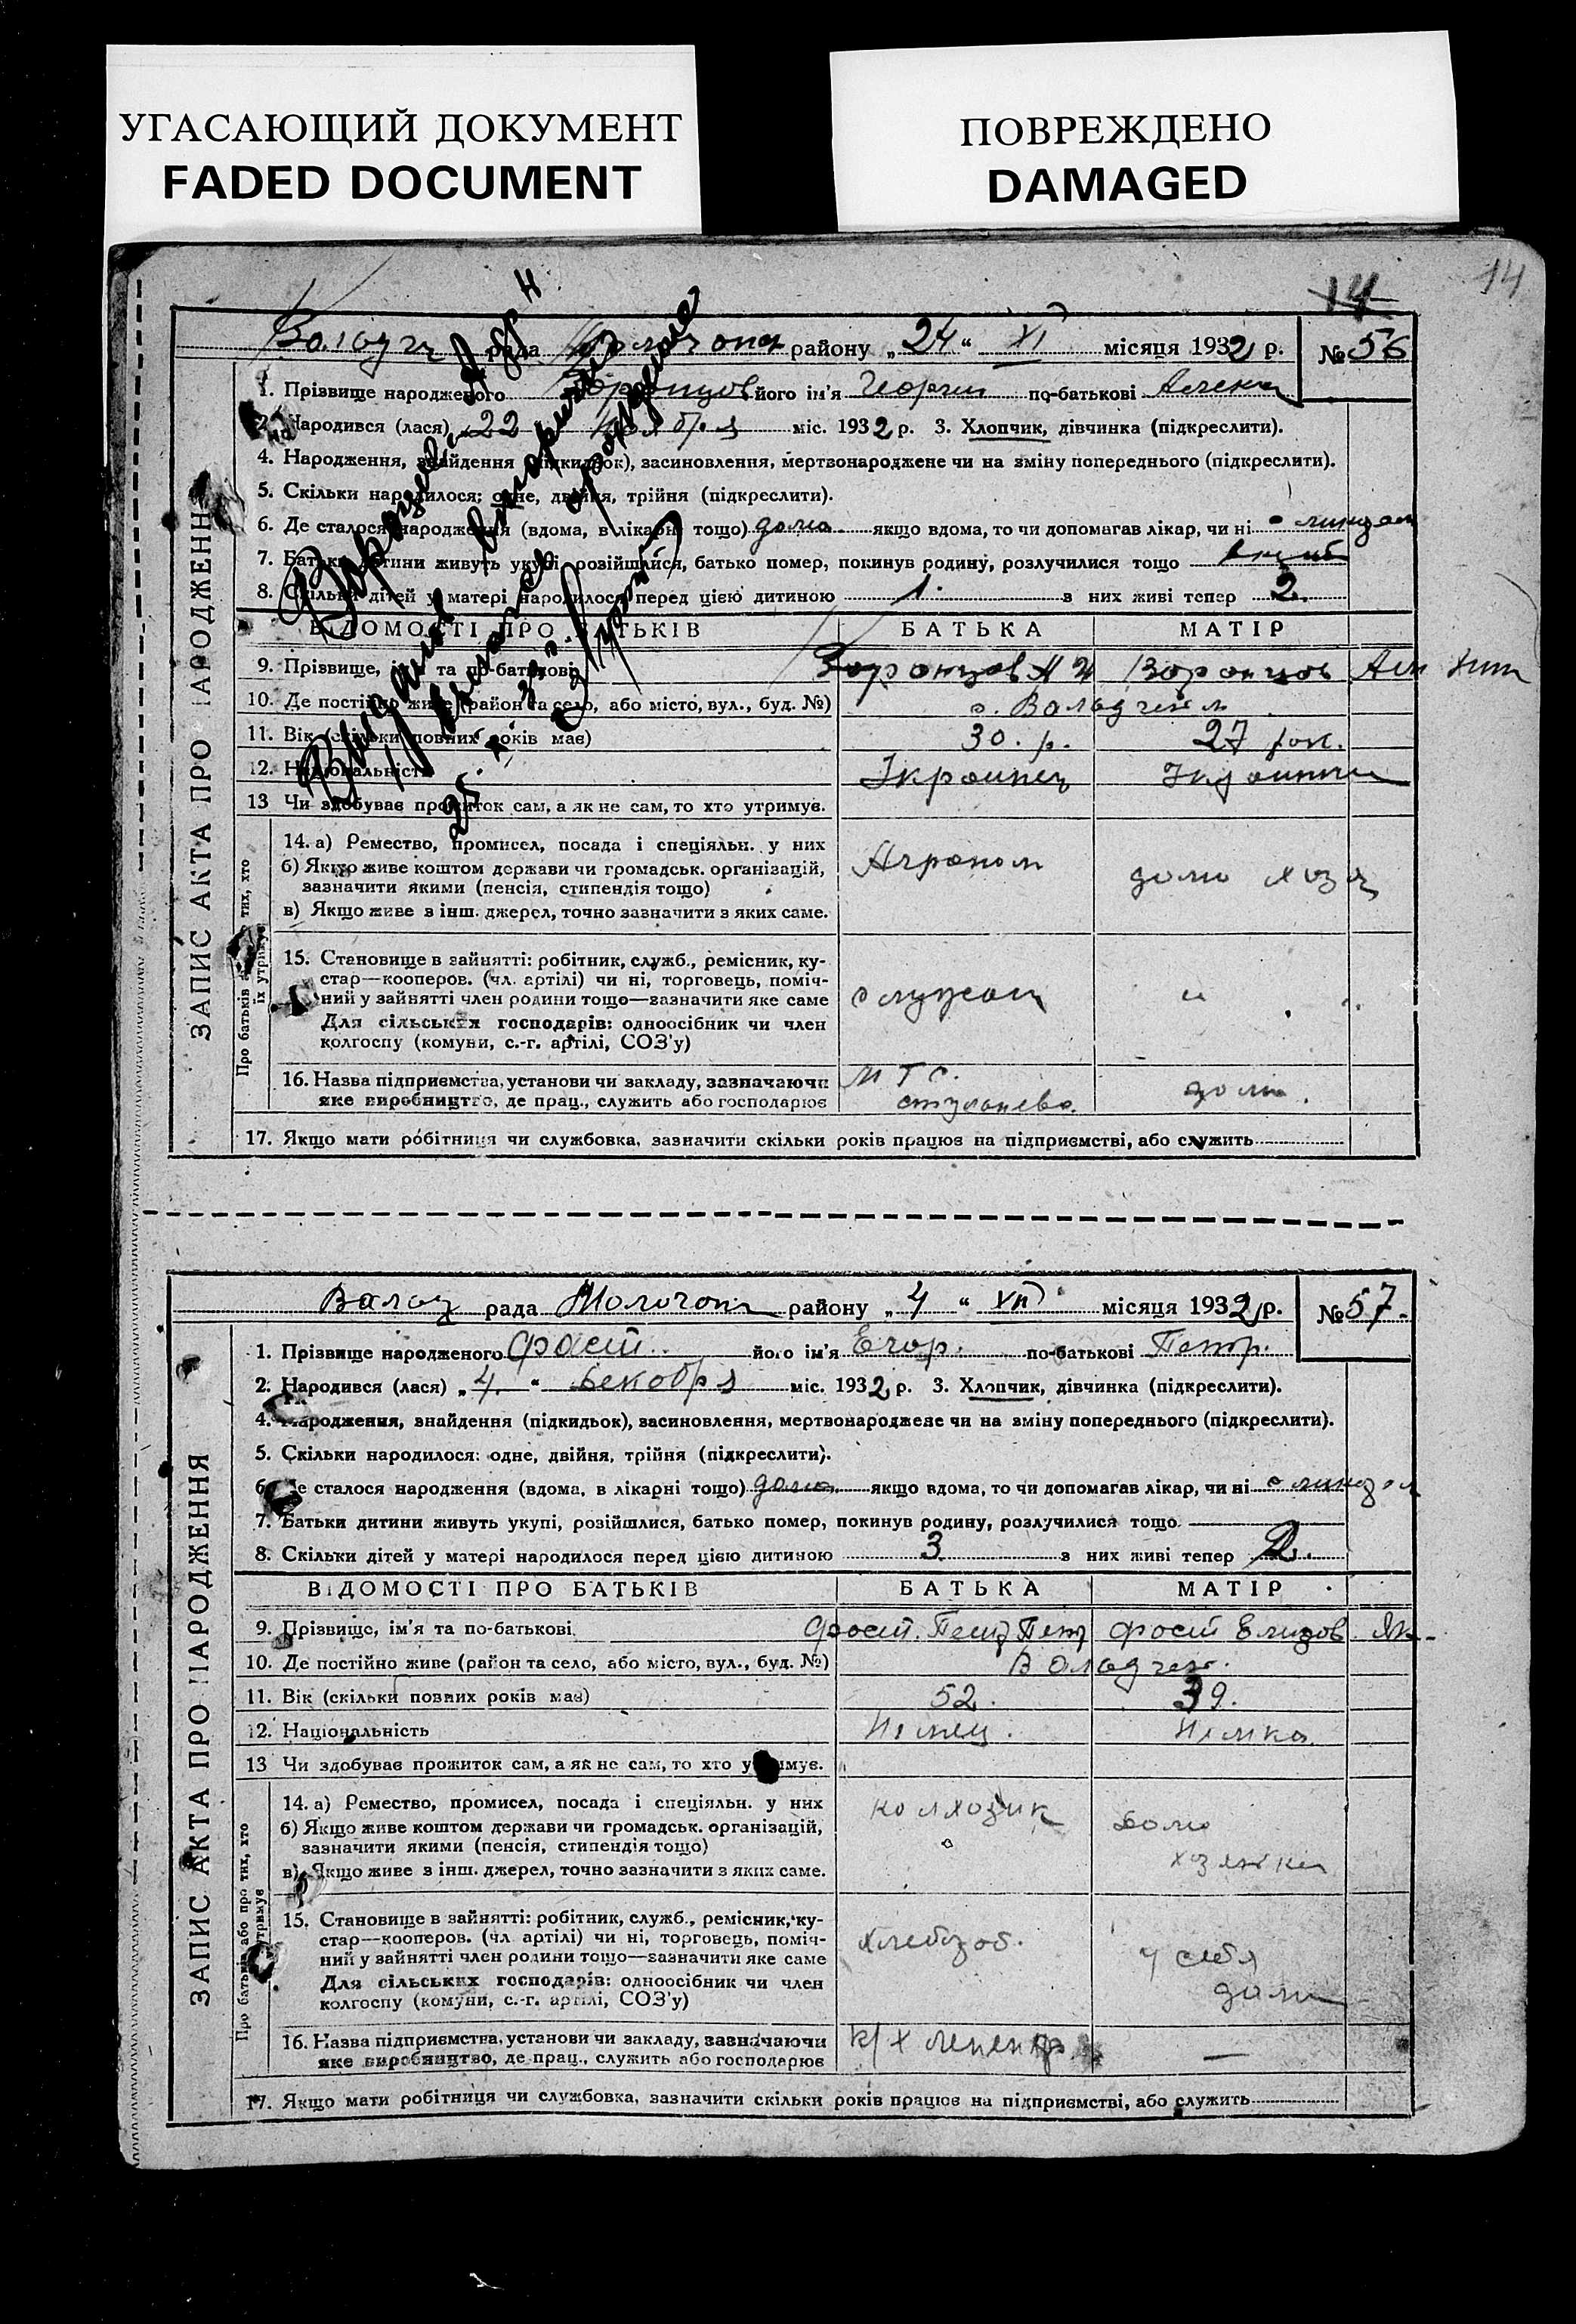 УГАСАЮЩИЙ ДОКУМЕНТ
FADED DOCUMENT
ПОВРЕЖДЕНО
DAMAGED
14
14
рада району „24“ XI місяця 1932 р. № 56
ЗАПИС АКТА ПРО НАРОДЖЕННЯ
1. Прізвище народженого Воронцов його ім'я Георгий по-батькові
2. Народився (лася) „22“ ноября міс. 1932 р. 3. Хлопчик, дівчинка (підкреслити).
4. Народження, знайдення (підкидьок), засиновлення, мертвонароджене чи на зміну попереднього (підкреслити).
5. Скільки народилося: одне, двійня, трійня (підкреслити).
6. Де сталося народження (вдома, в лікарні тощо) дома якщо вдома, то чи допомагав лікар, чи ні
7. Батьки дитини живуть укупі, розійшлися, батько помер, покинув родину, розлучилися тощо
8. Скільки дітей у матері народилося перед цією дитиною 1. з них живі тепер 2.
ВІДОМОСТІ ПРО БАТЬКІВ БАТЬКА МАТІР
9. Прізвище, ім'я та по-батькові Воронцов Воронцов
10. Де постійно живе (район та село, або місто, вул., буд. №)
11. Вік (скільки повних років має) 30. р. 27 рок.
12. Національність Украинец
13 Чи здобуває прожиток сам, а як не сам, то хто утримує.
Про батьків або про тих, хто їх утримує
14. а) Ремество, промисел, посада і спеціяльн. у них Агроном
б) Якщо живе коштом держави чи громадськ. організацій,
зазначити якими (пенсія, стипендія тощо) дома хоз
в) Якщо живе з інш. джерел, точно зазначити з яких саме.
15. Становище в зайнятті: робітник, служб., ремісник, ку-
стар—кооперов. (чл. артілі) чи ні, торговець, поміч-
ний у зайнятті член родини тощо—зазначити яке саме
Для сільських господарів: одноосібник чи член
колгоспу (комуни, с.-г. артілі, СОЗ'у)
16. Назва підприємства, установи чи закладу, зазначаючи МТС.
яке виробництво, де прац., служить або господарює дома.
17. Якщо мати робітниця чи службовка, зазначити скільки років працює на підприємстві, або служить
рада району „4“ XII місяця 1932 р. № 57.
ЗАПИС АКТА ПРО НАРОДЖЕННЯ
1. Прізвище народженого Фаст його ім'я Егор. по-батькові Петр.
2. Народився (лася) „4.“ Декобря міс. 1932 р. 3. Хлопчик, дівчинка (підкреслити).
4. Народження, знайдення (підкидьок), засиновлення, мертвонароджене чи на зміну попереднього (підкреслити).
5. Скільки народилося: одне, двійня, трійня (підкреслити).
6. Де сталося народження (вдома, в лікарні тощо) дома якщо вдома, то чи допомагав лікар, чи ні
7. Батьки дитини живуть укупі, розійшлися, батько помер, покинув родину, розлучилися тощо.
8. Скільки дітей у матері народилося перед цією дитиною 3 з них живі тепер 2.
ВІДОМОСТІ ПРО БАТЬКІВ БАТЬКА МАТІР
9. Прізвище, ім'я та по-батькові Фаст. Петр Петр Фаст Елизов Як.
10. Де постійно живе (район та село, або місто, вул., буд. №)
11. Вік (скільки повних років має) 52. 39.
12. Національність Немец. Немка
13 Чи здобуває прожиток сам, а як не сам, то хто утримує.
Про батьків або про тих, хто їх утримує
14. а) Ремество, промисел, посада і спеціяльн. у них колхозник
б) Якщо живе коштом держави чи громадськ. організацій, домо
зазначити якими (пенсія, стипендія тощо)
в) Якщо живе з інш. джерел, точно зазначити з яких саме. хозяйка
15. Становище в зайнятті: робітник, служб., ремісник, ку-
стар—кооперов. (чл. артілі) чи ні, торговець, поміч- хлебороб.
ний у зайнятті член родини тощо—зазначити яке саме у себя
Для сільських господарів: одноосібник чи член дома
колгоспу (комуни, с.-г. артілі, СОЗ'у)
16. Назва підприємства, установи чи закладу, зазначаючи к/х
яке виробництво, де прац., служить або господарює —
17. Якщо мати робітниця чи службовка, зазначити скільки років працює на підприємстві, або служить